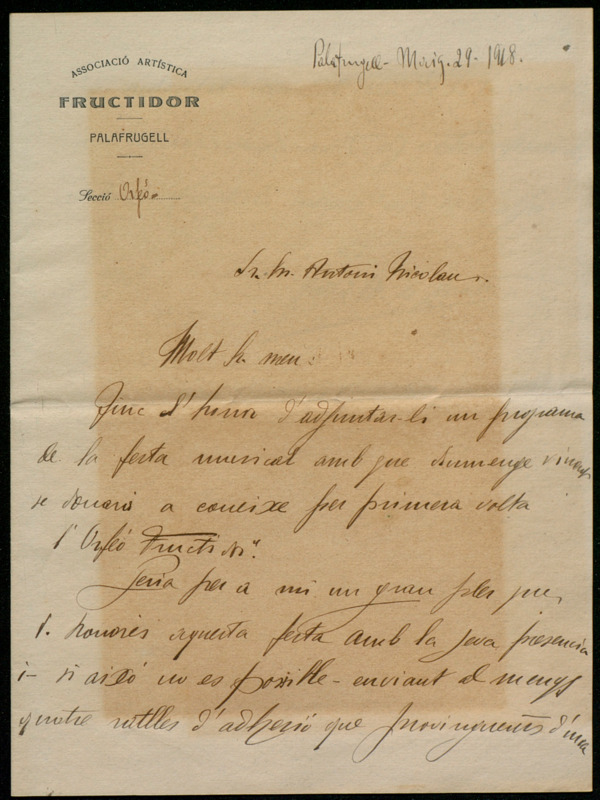 ASSOCIACIÓ ARTÍSTICA
FRUCTIDOR
PALAFRUGELL
Secció Orfeó
Palafrugell - Maig. 29 - 1918.
Sr. Dn. Antoni Nicolau.
Molt Sr. meu:
Tinc l'honor d'adjuntar-li un programa
de la festa musical amb que diumenge vinent
se donará a coneixe per primera volta
l'Orfeó Fructidor.
Seria per a mi un gran pler que
honorés aquesta festa amb la seva presencia
i - si aixó no es possible - enviant al menys
quatre ratlles d'adhesió que provinguents d'una